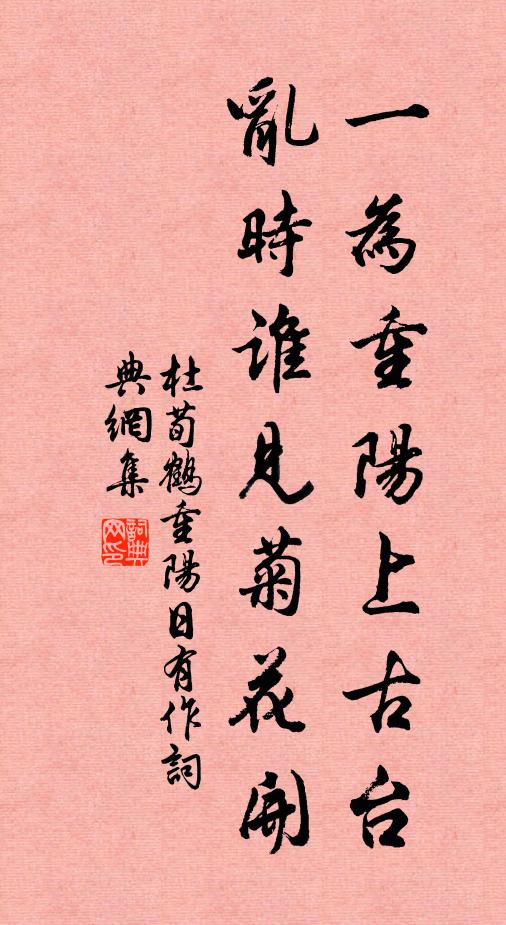 一為重陽上古台
亂時誰見菊花開
杜荀鶴重陽日有作詞
典網集
詞典网印